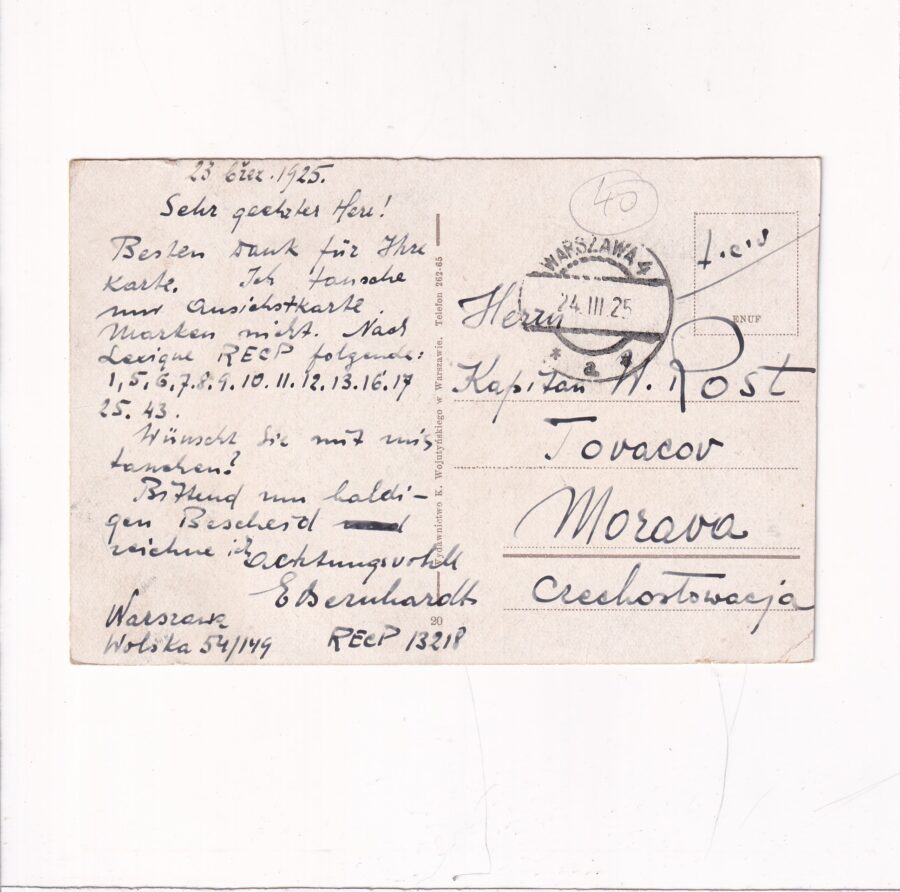 23 břez. 1925.
Sehr geehrter Herr!
Besten Dank für Ihre
Karte. Ich tausche
nur Ansichtskarte
Marken nicht. Nach
Lexique RECP folgende:
1,5,6,7.8.9.10.11.12.13.16.17
25. 43.
Wünscht Sie mit mir
tauschen?
Bittend um baldi-
gen Bescheid
zeichne ich
Achtungsvoll
EBernhardt
Warszawa
Wolska 54/149 RECP 13218
Wydawnictwo K. Wojutyńskiego w Warszawie. Telefon 262-65
20
40
WARSZAWA 4
24.III.25
* a
ENUF
Herrn
Kapitan W. Rost
Tovacov
Morava
Czechosłowacja